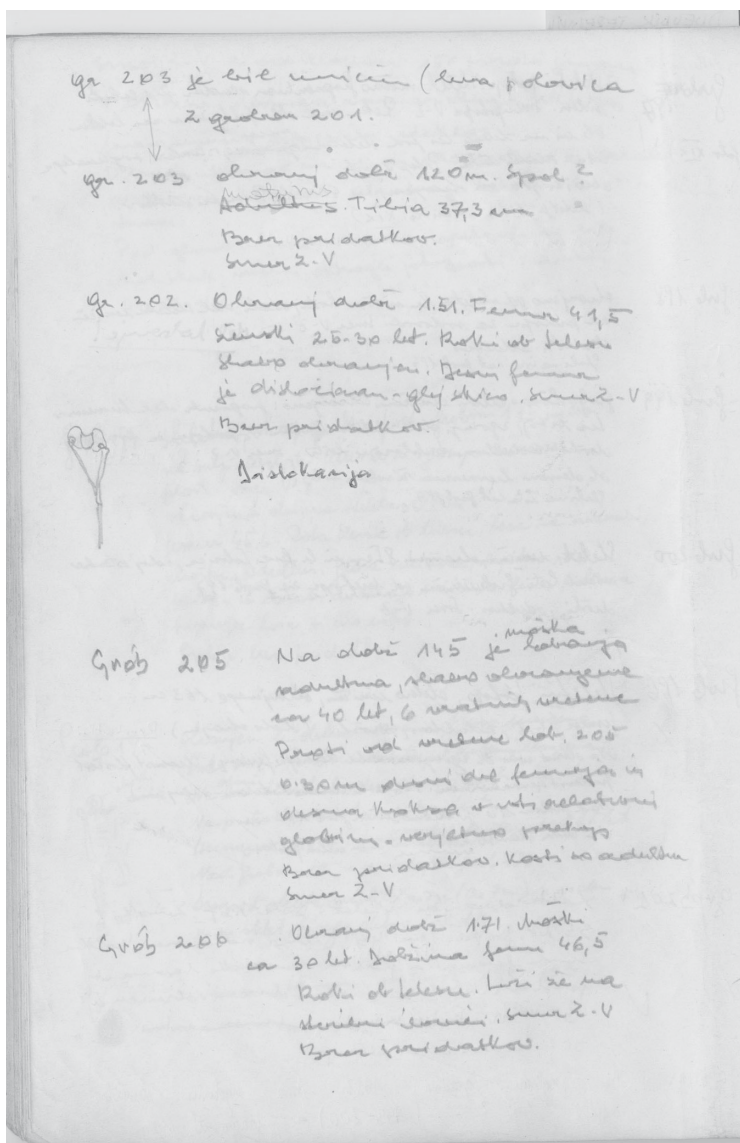 gr. 203 je bil uničen (leva polovica
z grobom 201.
gr. 203 ohranj dolž 120 m. Spol ?
maturus
Adultus. Tibia 37,3 cm
Brez pridatkov.
Smer Z-V
gr. 202. Ohranj dolž 1.51. Femur 41,5
ženski 25-30 let. Roki ob telesu
slabo ohranjen. Desni femur
je dislociran - glej skico. Smer Z-V
Brez pridatkov.
Dislokacija
Grob 205 Na dolž 145 je
moška
adultna, slabo ohranjena
ca 40 let, 6 vratnih vretenc
0.30 m desni del femurja in
desna v isti relativni
globini - verjetno prekop
Brez pridatkov. Kosti so adultna
Smer Z-V
Grob 206 Ohranj dolž 1.71. Moški
ca 30 let. Dolžina femu 46,5
Roki ob telesu. Leži že na
Smer Z-V
Brez pridatkov.